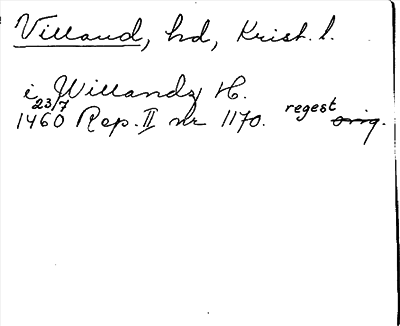 Villand, hd, Krist. l.
i Willandz H.
23/7
1460 Rep. II nr 1170. regest orig.